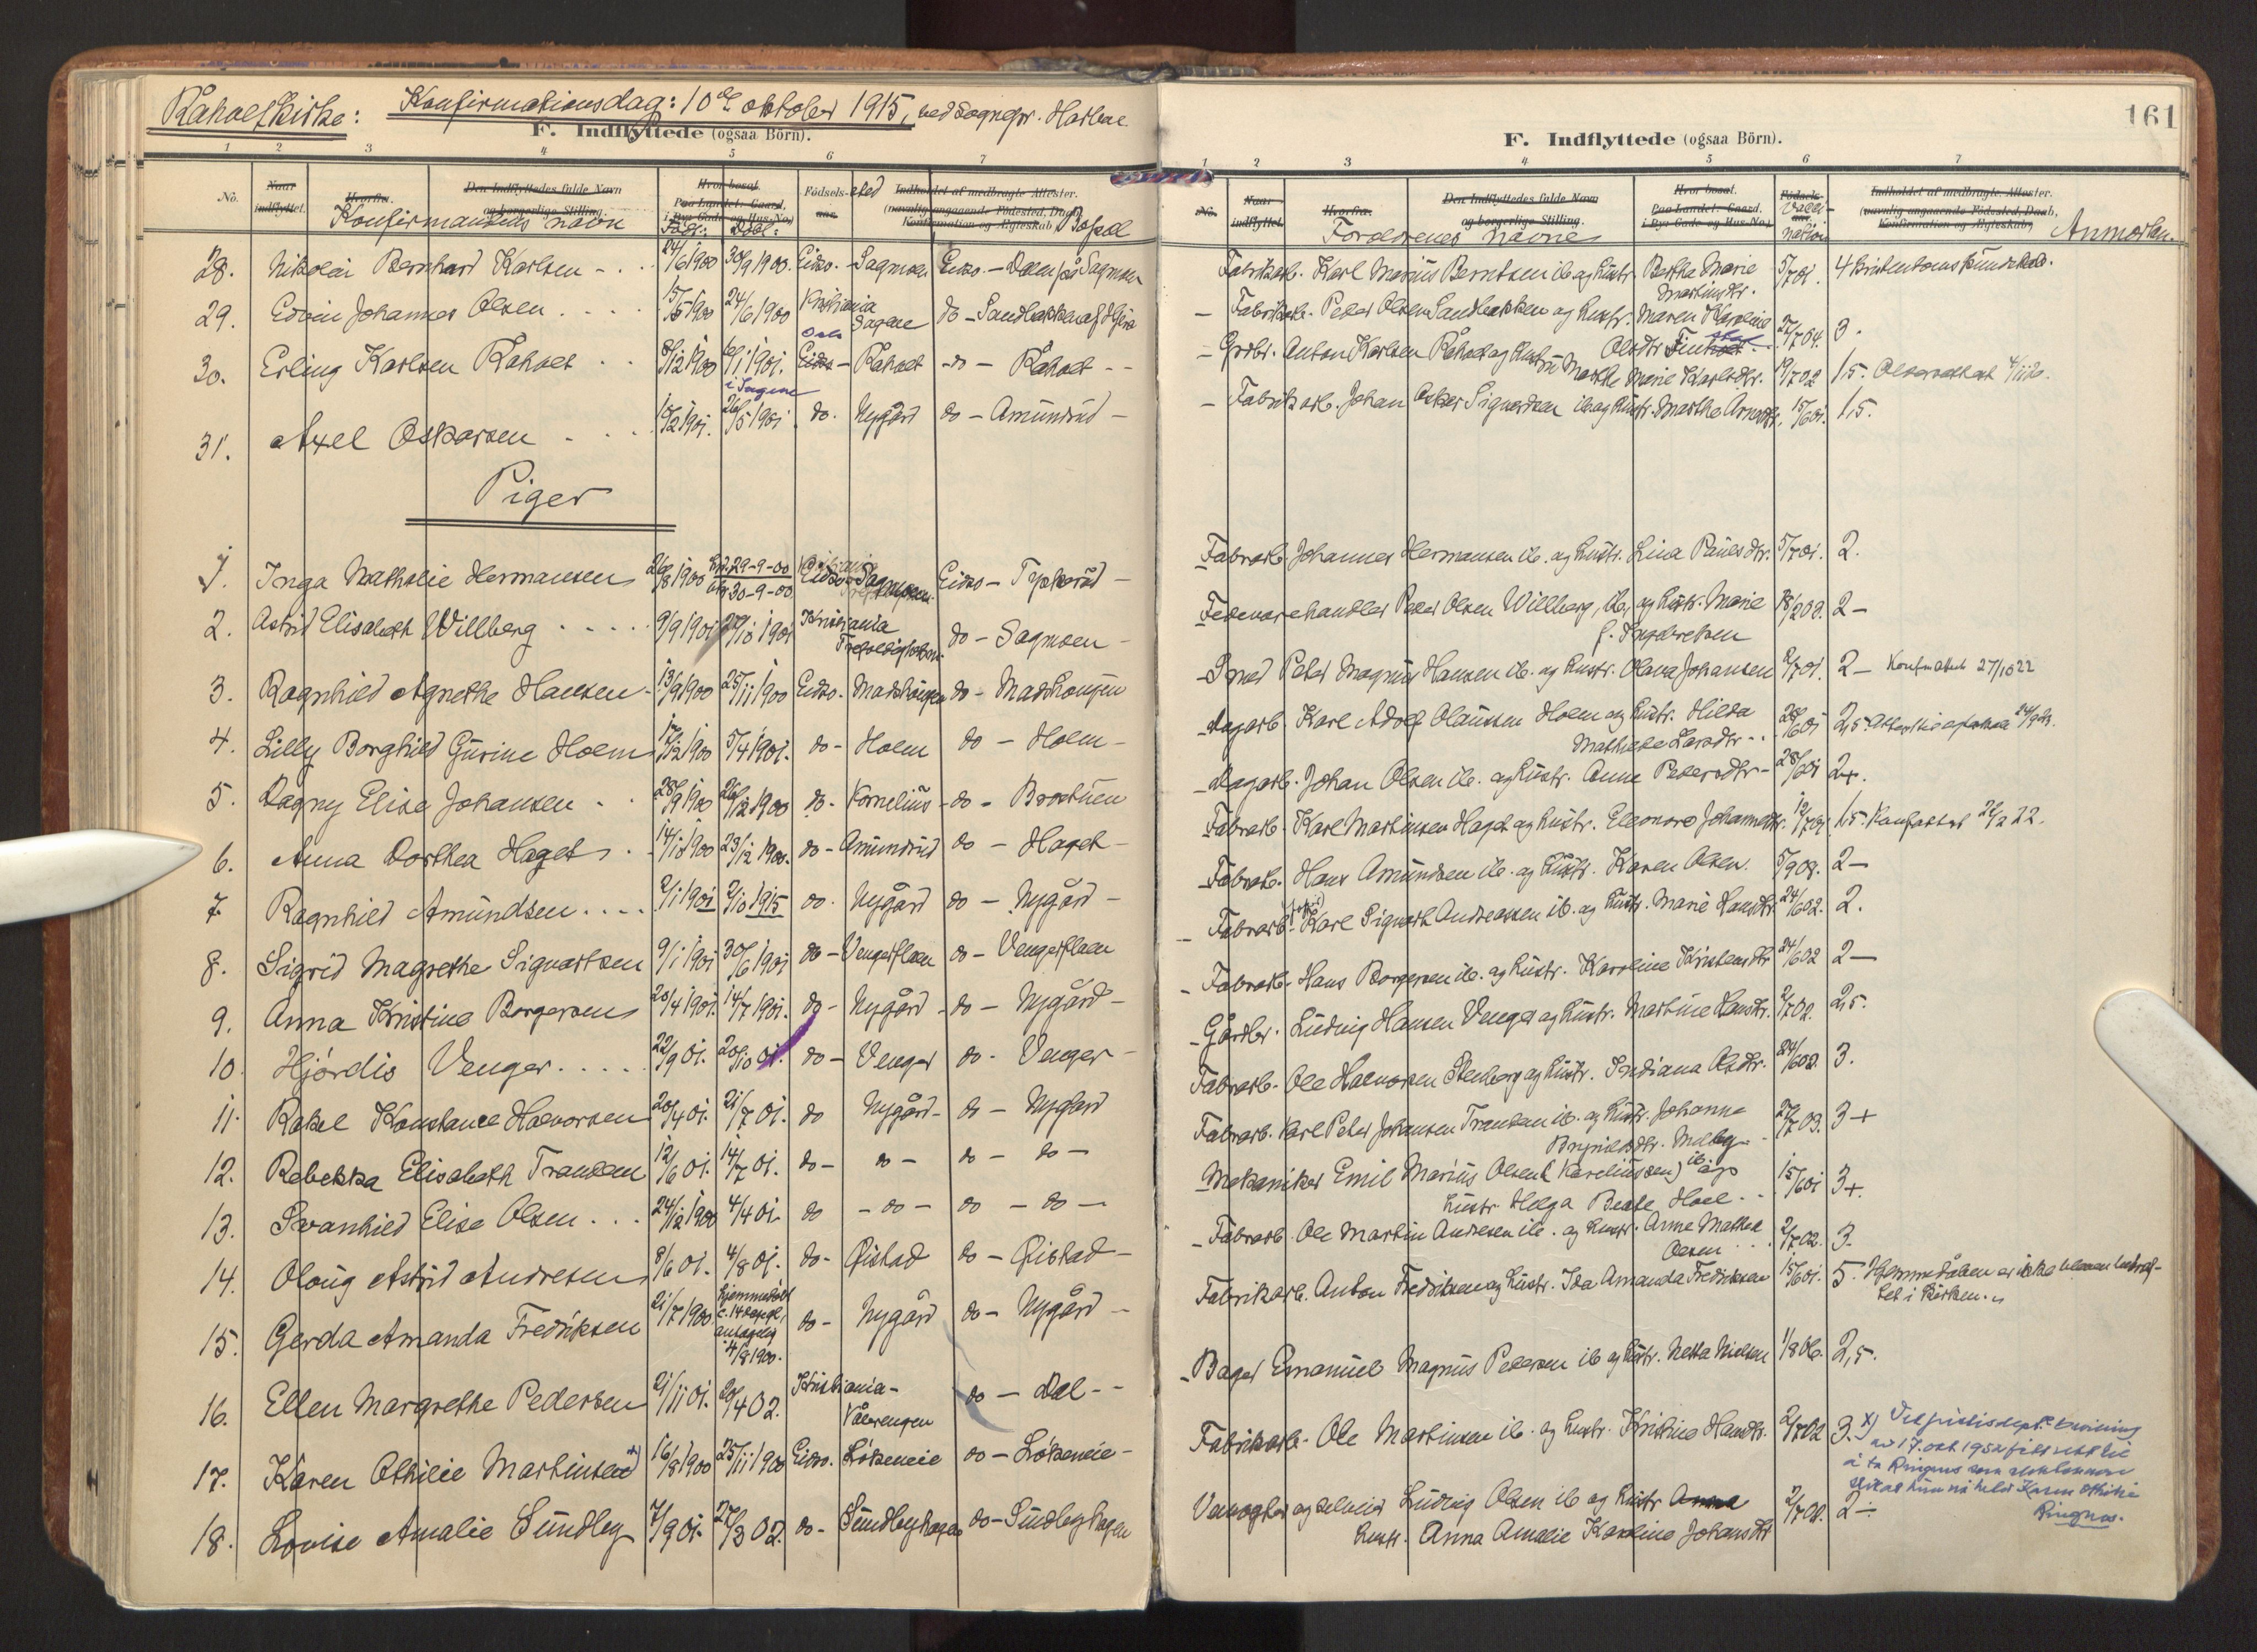 Råholt Kirke: Konfirmationsdag: 10de oktober 1915, ved sognepr.
F. Indflyttede (ogsaa Börn).
1 2 3 4 5 6 7
No. Naar indflyttet. Hvorfra. Den Indflyttedes fulde Navn og borgerlige Stilling. Hvor bosat. Paa Landet: Gaard, i By: Gade og Hus-No. Födsels-sted aar. Indholdet af medbragte Attester. (navnlig angaaende Födested, Daab, Konfirmation og Ægteskab)
Konfirmandens navn Födt: Döbt: Bopæl
28. Nikolai Bernhard Karlsen - . . 24/6 1900 30/9 1900. Eidsv. - Sagmoen Eidsv. - Dalen på Sagmoen
29. Edvin Johannes Olsen . . . . 15/5 1900 24/6 1900 Kristiania Sagene do - Sandbakken
30. Erling Karlsen Råholt . . 8/12 1900 6/1 1901. Oslo Eidsv. - Råholt - do - Råholt - -
i Sagene
31. Axel Oskarsen - . . 15/2 1901. 26/5 1901 do. Nygård do - Amundrud -
Piger
1. Inga Nathalie Hermansen 26/8 1900 29-9-00 Kristiania Eidsv - Sagmoen Eidsv - Tepkerud -
30-9-00
2. Astrid Elisabeth Willberg . . . . . 9/9 1901 27/10 1901 Kristiania do - Sagmoen -
3. Ragnhild Agnethe Hansen - 13/9 1900 25/11 1900 Eidsv. - Madshaugen do - Madshaugen
4. Lilly Borghild Gurine Holm 17/12 1900 5/4 1901. do - Holm do - Holm -
5. Dagny Elise Johansen . . 28/9 1900 26/12 1900 do. - Kornelius - do - Brostuen
6. Anna Dorthea Haget . . 14/10 1900 23/12 1900. do - Amundrud do - Haget -
7 Ragnhild Amundsen . . . . 2/1 1901 2/10 1915 do. Nygård do - Nygård -
8. Sigrid Magrethe Sigvartsen 9/1 1901 30/6 1901 do - Vengerflaen do - Vengerflaen
9. Anna Kristine Borgersen 20/4 1901. 14/7 1901. do - Nygård - do - Nygård -
10. Hjördis Venger . . . . . 22/9 01. 20/10 01. do - Venger do - Venger -
11. Rakel Konstance Halvorsen 20/4 01. 21/7 01. do Nygård - do - Nygård
12. Rebekka Elisabeth Trandsen 12/6 01. 14/7 01. do - do - do - do -
13. Svanhild Elise Olsen . . . 24/12 1900 4/4 01. do - do - do - do -
14. Olaug Astrid Andresen 8/6 01. 4/8 01. do - Qistad do - Qistad -
15. Gerda Amanda Fredriksen 21/7 1900 hjemmedöbt c. 14 dage gl., antagelig 4/8 1900. do - Nygård do - Nygård -
16. Ellen Margrethe Pedersen 21/11 01. 20/4 02. Kristiania - Vålerengen do - Dal - -
17. Karen Othilie Martinsen x) 16/8 1900 25/11 1900 Eidsv. Lökeneie do - Lökeneie -
18. Lovise Amalie Sundby 7/9 01. 27/3 02. do - Sundbyhagen do - Sundbyhagen
161
F. Indflyttede (ogsaa Börn).
1 2 3 4 5 6 7
No. Naar indflyttet. Hvorfra. Den Indflyttedes fulde Navn og borgerlige Stilling. Hvor bosat. Paa Landet: Gaard, i By: Gade og Hus-No. Födsels-aar. Indholdet af medbragte Attester. (navnlig angaaende Födested, Daab, Konfirmation og Ægteskab)
Forældrenes navne Vaccination Anmerkn.
Fabrikarb. Karl Marius Berntsen ib. og hustr. Berthe Marie Martinsdtr. 5/7 01. 4 Kristendomskundskab.
- Fabrikarb. Peder Olsen Sandbakken og hustr. Maren Karoline Olsdtr. 27/7 04. 3.
- Grdbr. Anton Karlsen Råholt og hustru Marthe Marie Karlsdtr. 19/7 02 1,5.
- Fabrikarb. Johan Oskar Sigvardsen ib. og hustr. Marthe 15/6 01. 1,5.
Fabrarb. Johannes Hermansen ib. og hustr. Lina Paulsdtr. 5/7 01. 2.
Fedevarehandler Peder Olsen Willberg, ib., og hustr. Marie f. Ingebretsen 18/2 08. 2 -
- Smed Peter Magnus Hansen ib. og hustr. Olava Johansen 2/7 01. 2 - Konf.attest 27/10 22
- Dagarb. Karl Adolf Olaussen Holm og hustr. Hilda Mathilde Larsdtr - . 28/6 01 2,5.
- Dagarb. Johan Olsen ib. og hustr. Anne Pedersdtr - 28/6 01 2+.
- Fabrarb. Karl Martinsen Haget og hustr. Eleonore Johannesdtr. 1,5. Konf.attest 22.
- Fabrarb. Hans Amundsen ib. og hustr. Karen Olsen. 5/9 08. 2 -
- Fabrarb. Karl Sigvarth Andreassen ib. og hustr. Marie Hansdtr. 24/6 02. 2.
- Fabrarb. Hans Borgersen ib. og hustr. Karoline Kristensdtr 24/6 02 2 -
- Gårdbr. Ludvig Hansen Venger og hustr. Martine Hansdtr. 2/7 02. 2,5.
Fabrarb. Ole Halvorsen Stenberg og hustr. Indiana Olsdtr. 24/6 02. 3.
Fabrarb. Karl Peter Johansen Trandsen ib. og hustr. Johanne Brynildsdtr. Melby - - 27/7 03. 3+
- Mekaniker Emil Marius Olsen (Kareliussen) ib. og hustr Helga Beate Hoel . . 15/6 01 3+.
- Fabrarb. Ole Martin Andresen ib. og hustr. Anne Mathea Olsen . . 2/7 02. 3.
Fabrikarb. Anton Fredriksen og hustr. Ida Amanda Fredriksen 15/6 01. 5. Hjemmedåben er ikke bleven bekræftet i kirken.
- Bager Emanuel Magnus Pedersen ib og hustr. Netta Nielsen 1/8 06. 2,5.
Fabrikarb. Ole Martinsen ib. og hustr. Kristine Hansdtr. 2/7 02 3. x) Ved justisdept.s bevilling
av 17. okt 1952 fikk
å ta Ringnes som slektsnavn
slik at hun nå heter Karen Othilie
Ringnes.
Vanvogter og selveier Ludvig Olsen ib og hustr Anna
hustr. Anna Amalie Karoline Johansdtr 2/7 02. 2 -